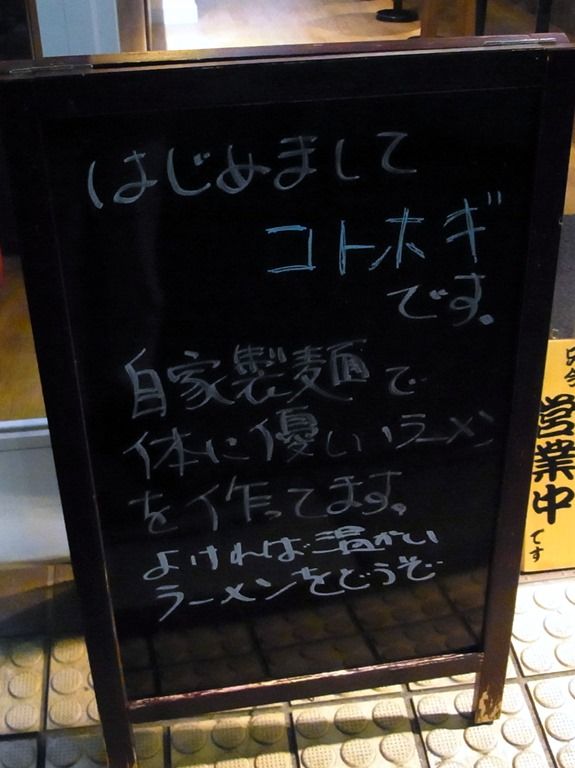 はじめまして
コトホギ
です。
自家製麺で
体に優しいラーメン
を作ってます。
よければ温かい
ラーメンをどうぞ
只今
営業中
です